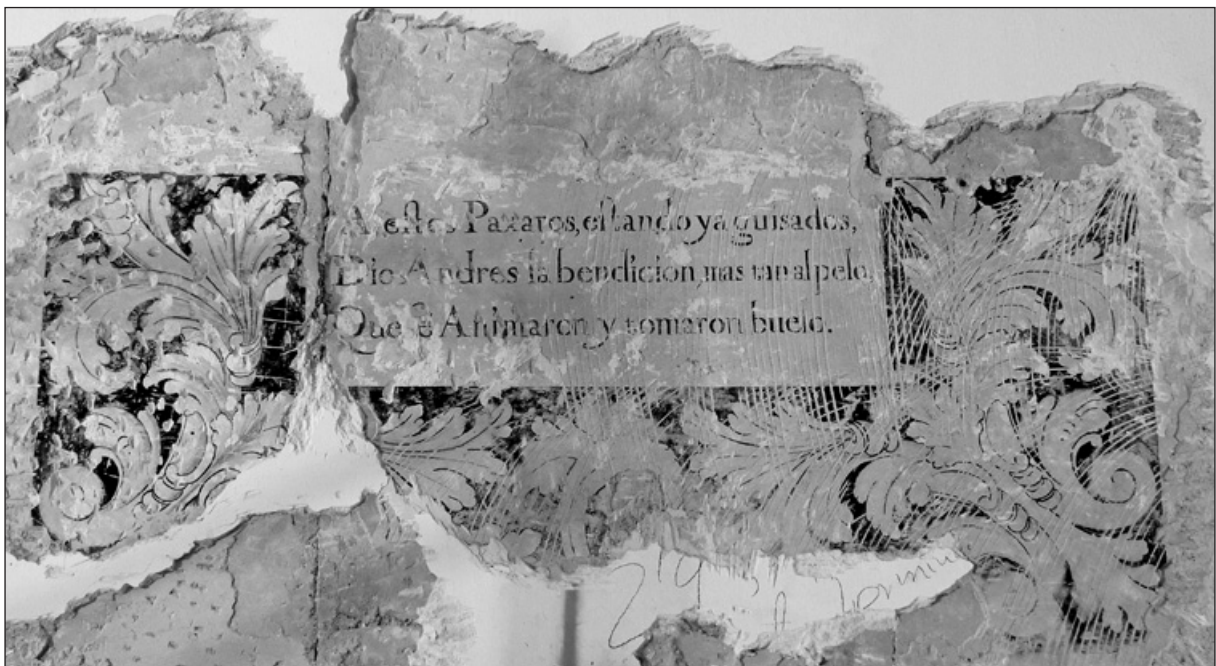 A estos Paxaros, estando ya guisados,
Dio Andres la bendicion, mas tan al pelo,
Que se Animaron y tomaron buelo.